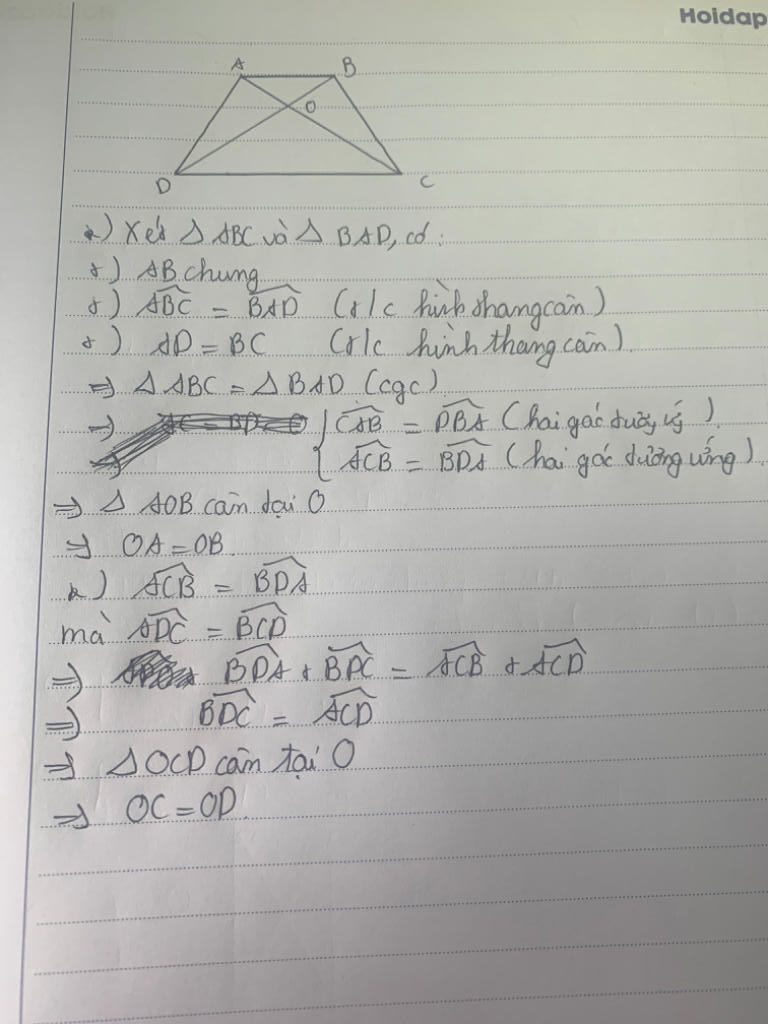 Hoidap
A
B
O
D
C
a) Xét Δ ABC và Δ BAD, có:
+) AB chung
+) ABC = BAD (t/c hình thang cân)
+) AD = BC (t/c hình thang cân)
=> Δ ABC = Δ BAD (cgc)
=> { CAB = DBA (hai góc tương ứng)
ACB = BDA (hai góc tương ứng)
=> Δ AOB cân tại O
=> OA = OB
b) ACB = BDA
mà ADC = BCD
=> BDA + BDC = ACB + ACD
=> BDC = ACD
=> Δ OCD cân tại O
=> OC = OD